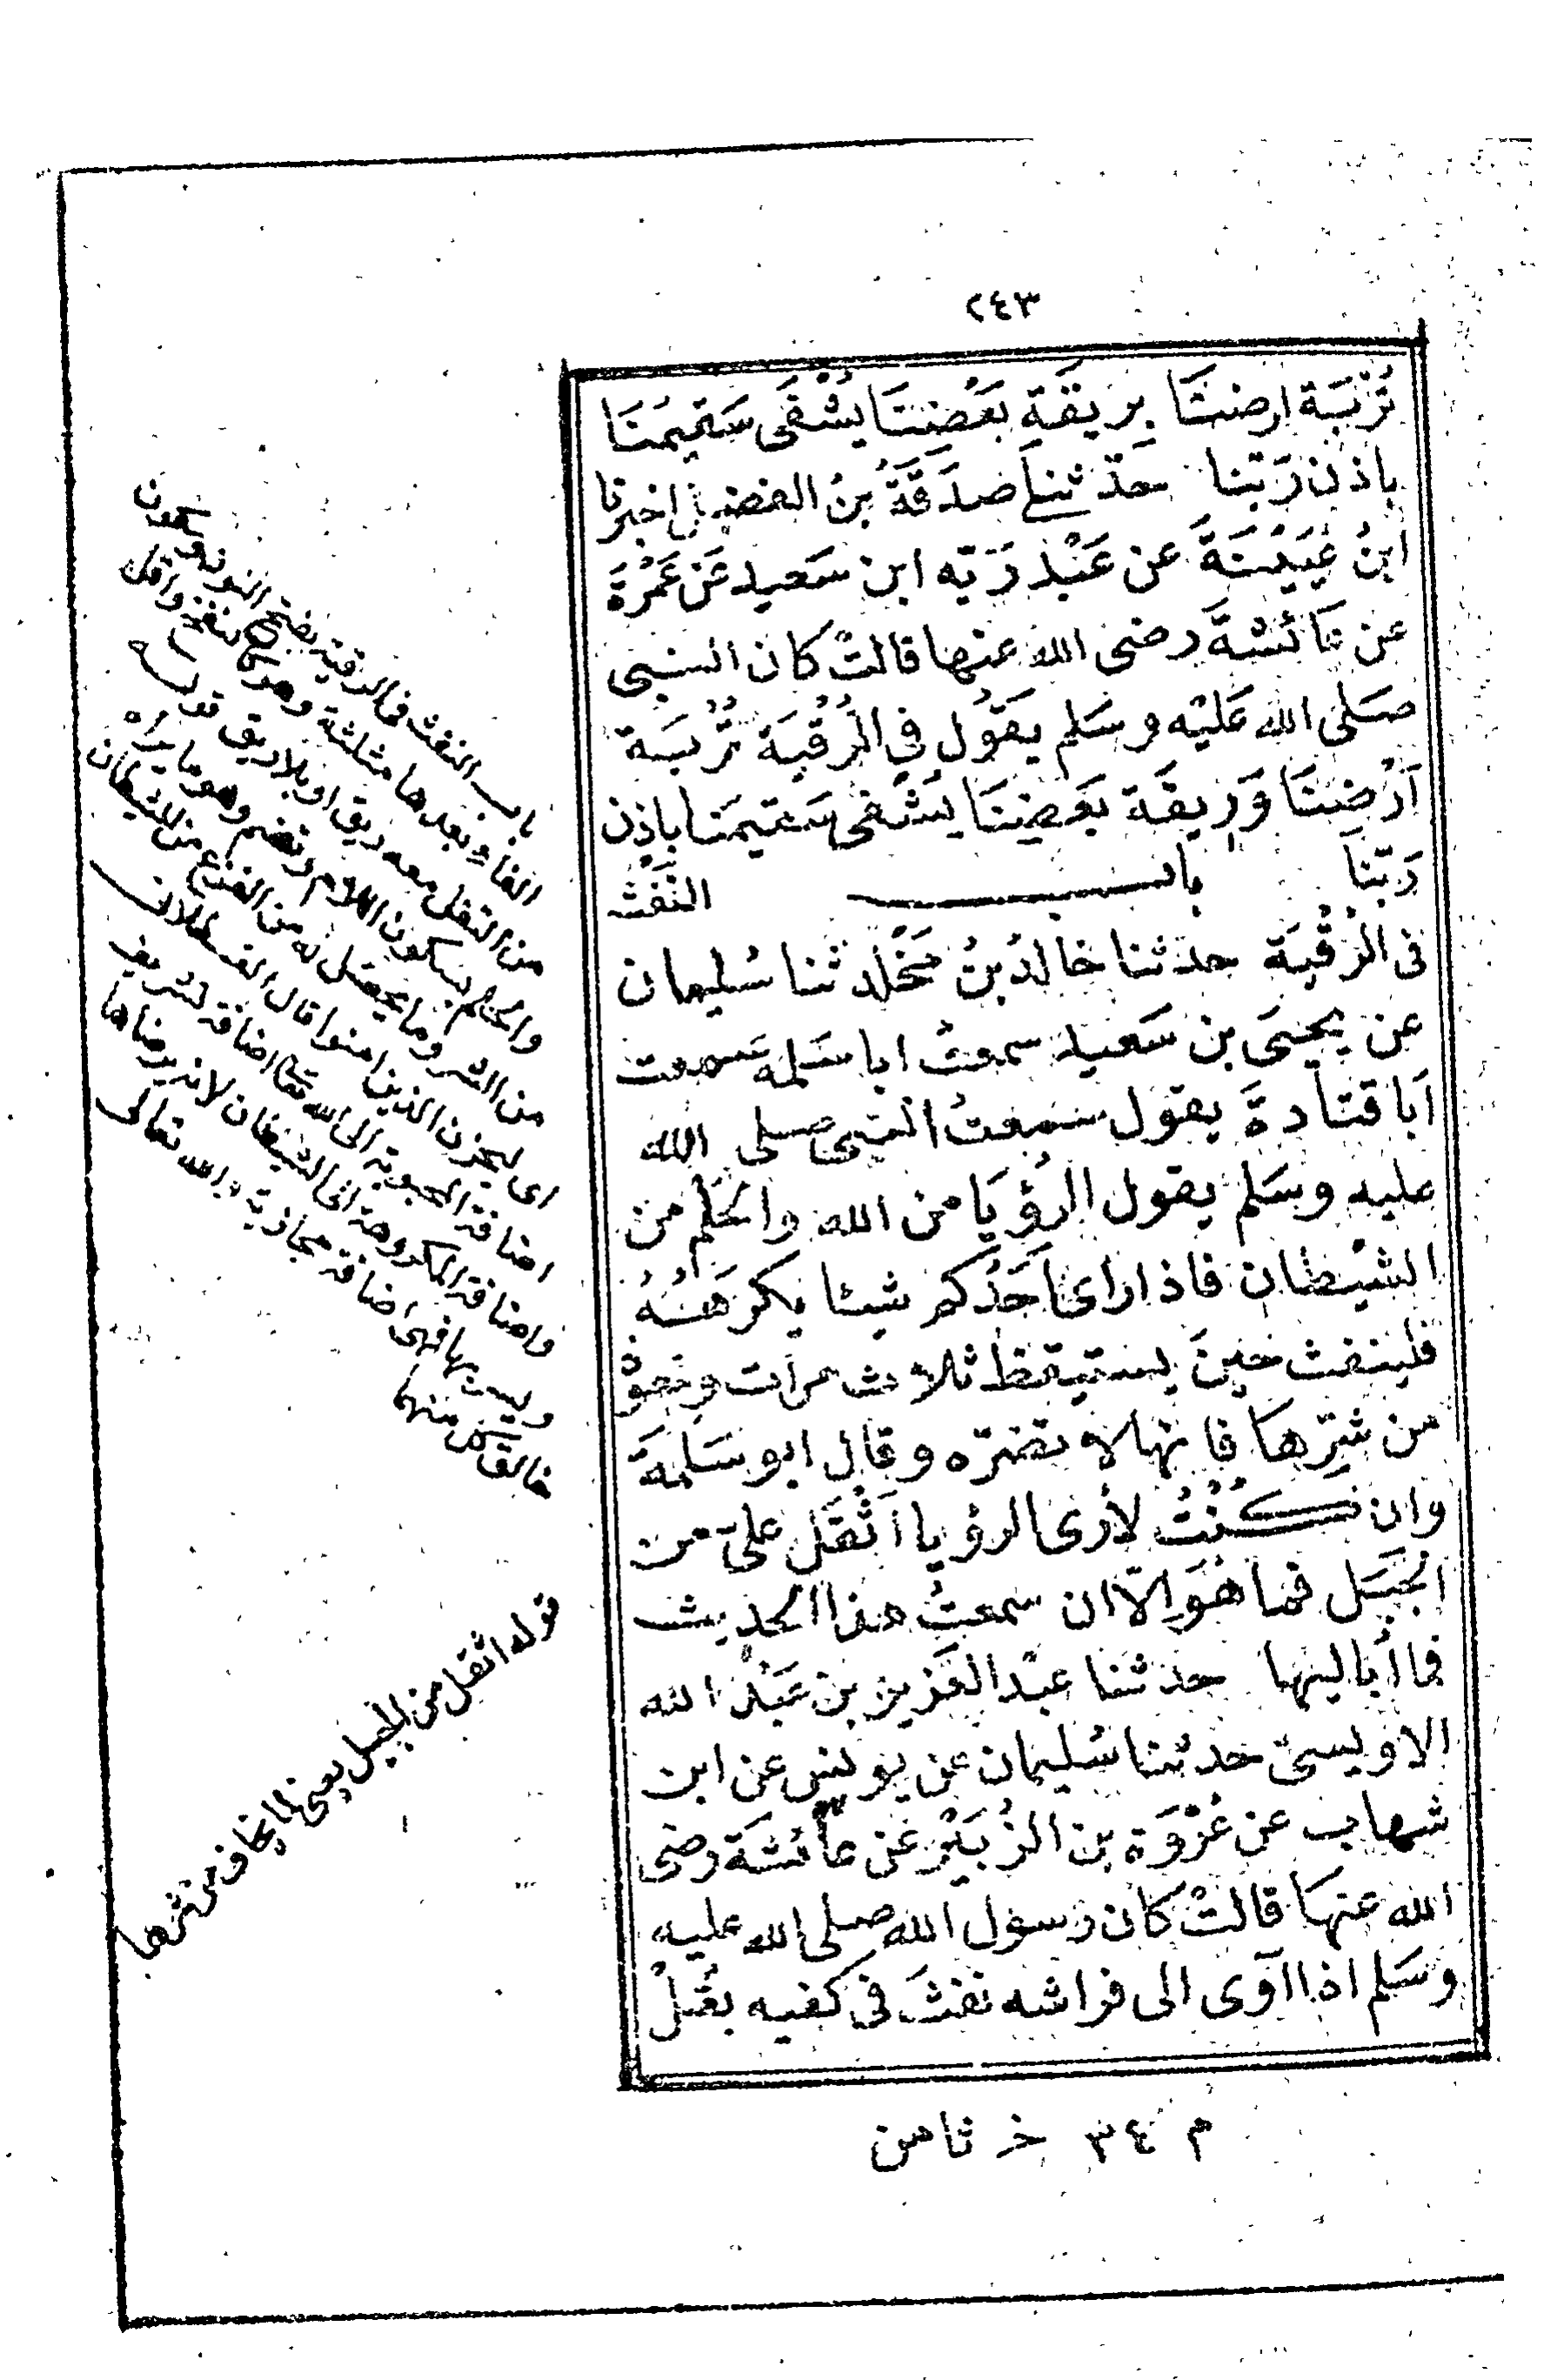 ٢٤٣
تُرْبَة ارضنَا بِرِيقَةِ بَعْضِنَا يُشْفَى سَقيمُنَا
باذن رَبّنا حَدّثنا صَدَقَةُ بنُ الفضل اخبرنا
ابنُ عُيَيْنَةَ عن عَبْد رَبّه ابن سَعيد عَن عَمْرَةَ
عن عَائشةَ رضى الله عنها قالتْ كان النبى
صَلى الله عَليْه وسَلم يقَوُل فِي الرُّقْيَة تُرْبَة
اَرْضِنَا وَرِيقَة بَعْضِنَا يُشْفى سَقيمُنا باِذن
رَبّنا باب النَّفْث
فى الرُّقْيَة حدثنا خَالدُ بنُ مَخْلَد ثنا سُليمان
عن يحيىَ بن سَعيد سمعتُ ابا سَلمة سَمعت
اَبا قتادةَ يقول سَمعتُ النبى صلى الله
عليه وسَلم يقول الرؤيَا من الله والحُلْم من
الشيْطان فاذا راى اَحَدُكم شيئا يكرَهُهُ
فلينفث حينَ يستيقظ ثلاث مرات ويتعوذ
من شرّها فانها لا تضرّه وقال ابو سَلمَةَ
وان كُنْتُ لأرَى الرؤيا اَثْقَل علىّ من
الجبَل فما هوَ اِلاّ ان سمعتُ هذا الحديث
فما اُباليها حدثنا عبْد العَزيز بن عَبْد الله
الاويسىّ حدثنا سُليمان عن يونس عن ابن
شهاب عن عُرْوَة بن الزُبَيْر عَن عائشَة رضى
الله عنهَا قالتْ كان رسول الله صلى الله عليه
وسَلم اذا اَوى الى فراشه نفثَ فى كفيه بقُلْ
م ٣٤ خ ثامن
باب النفث فى الرقية بفتح النون وسكون
الفاء وبعدها مثلثة وهو كالنفخ واقل
من التفل معه ريق او بلا ريق قوله
والحلم بسكون اللام وتضم وهو ما يراه
من الشر وما يحصل له من الفزع من الشيطان
اى ليحزن الذين امنوا قال القسطلانى
اضافة المحبوبة الى الله تعالى اضافة تشريف
واضافة المكروهة الى الشيطان لانه يرضاها
ويسر بها فهى اضافة مجازية والله تعالى
خالق كل منهما
قوله اثقل من الجبل يعنى لما يخاف من شرها